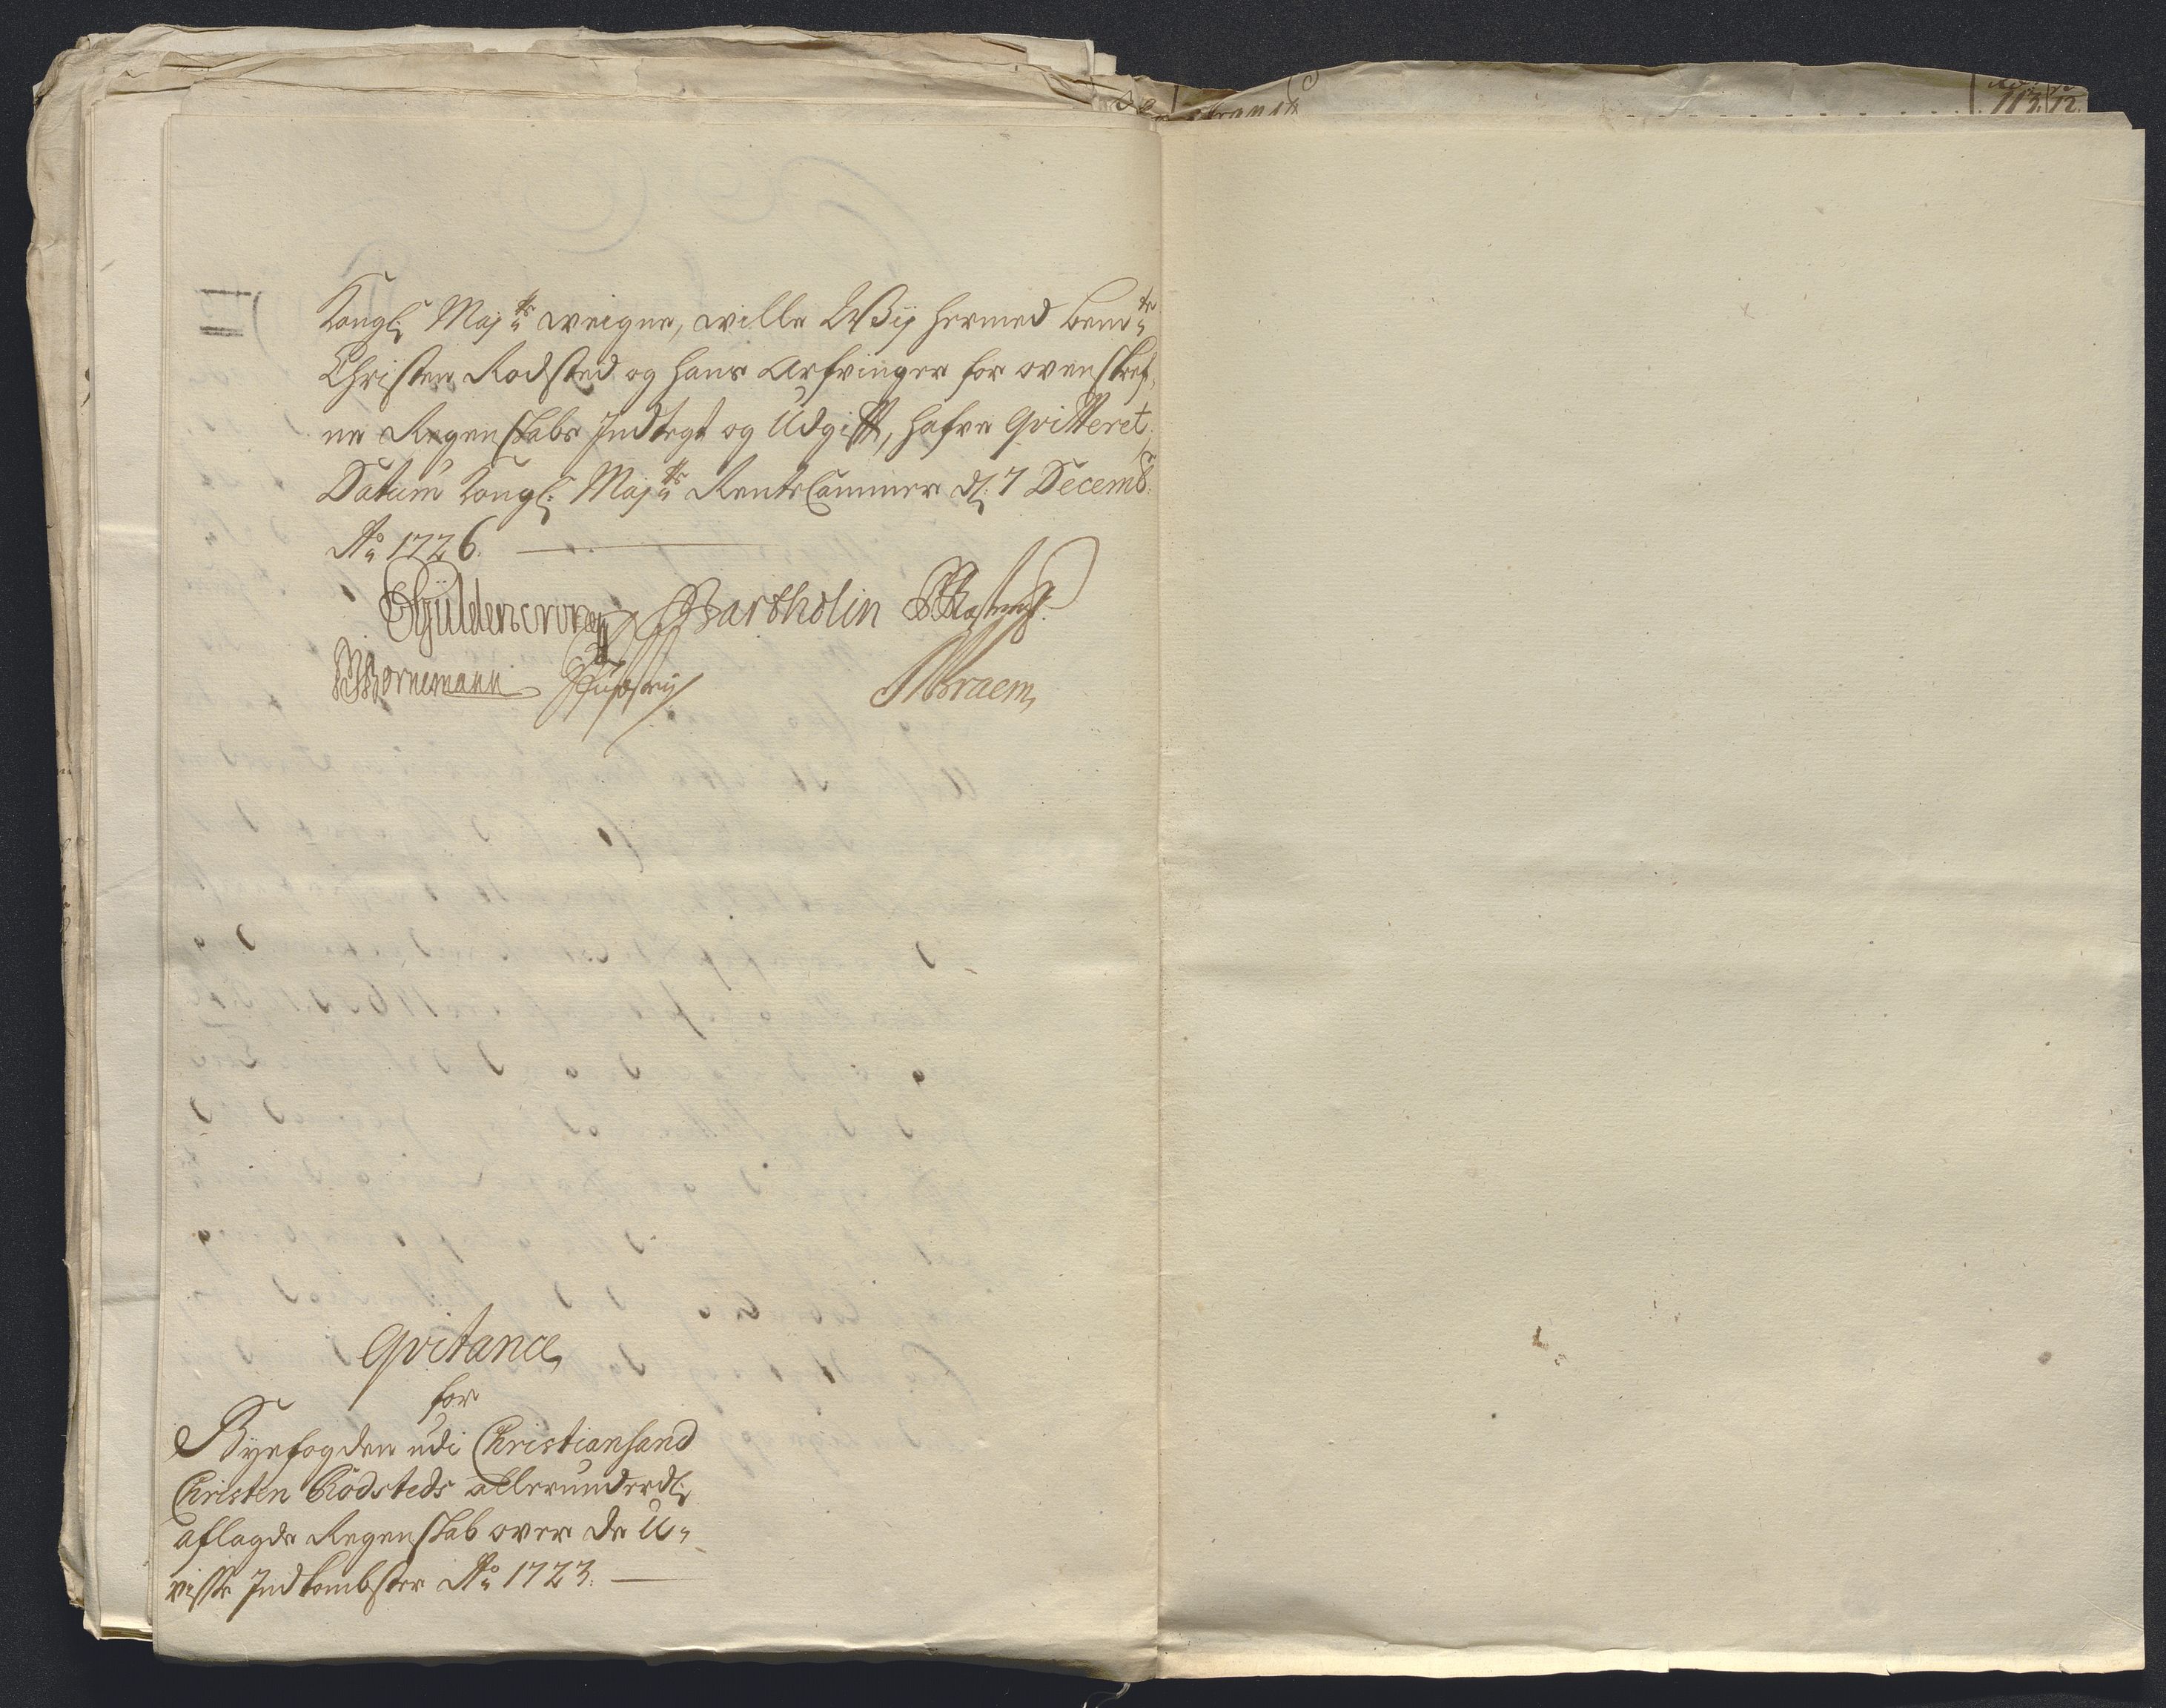 Kongl: Maj:ts weigne, wille Wij hermed bem:te
Christen Rodsted og hans Arfvinger for ovenskref,,
ne Regenskabs Indtegt og Udgifft, hafve qvitteret,
Datum Kongl: Maj:ts RenteCammer d: 7 Decembr:
Ao 1726.
Gÿldencrone Bartholin
Bornemann Braem
Qvitance
for
Byefogden udi Christiansand
Christen Rodsteds allerunderd:
aflagde Regenskab over de U-
visse Indkombster Ao 1723.
113. 12.